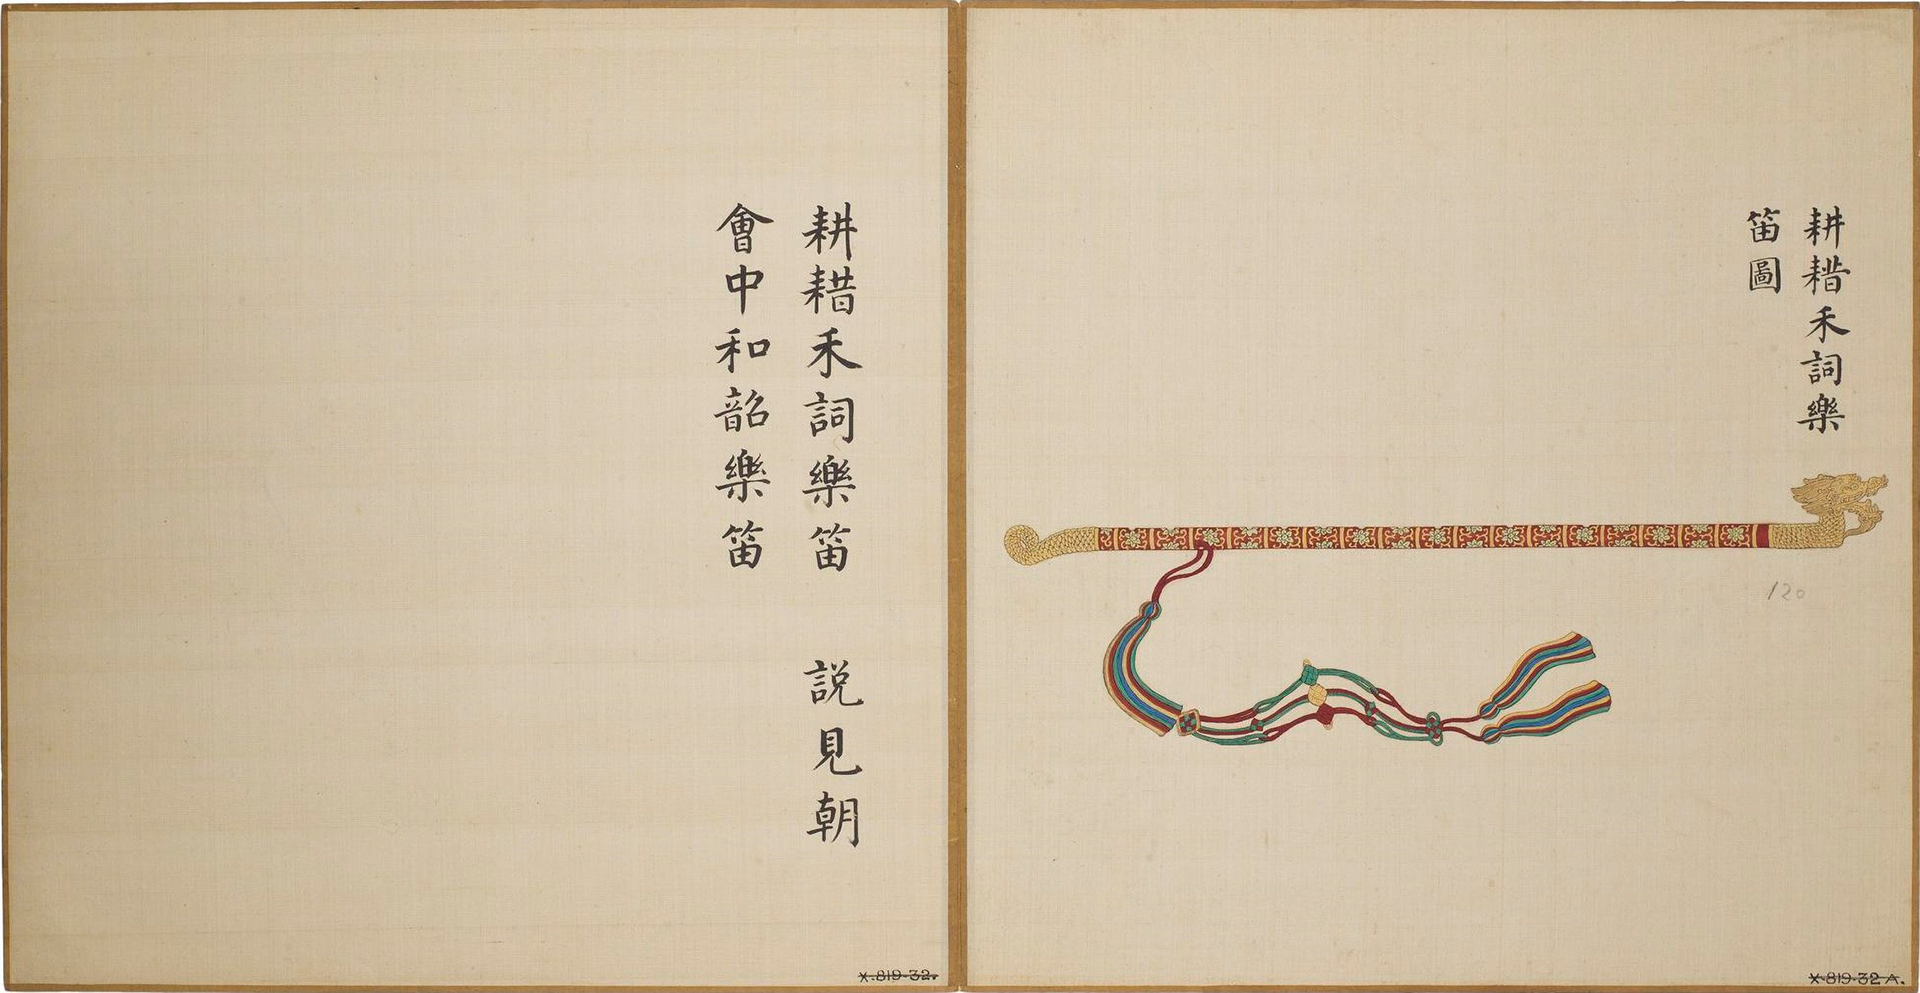 耕耤禾詞樂
笛圖
120
X-819-32 A.
耕耤禾詞樂笛 説見朝
會中和韶樂笛
X-819-32.